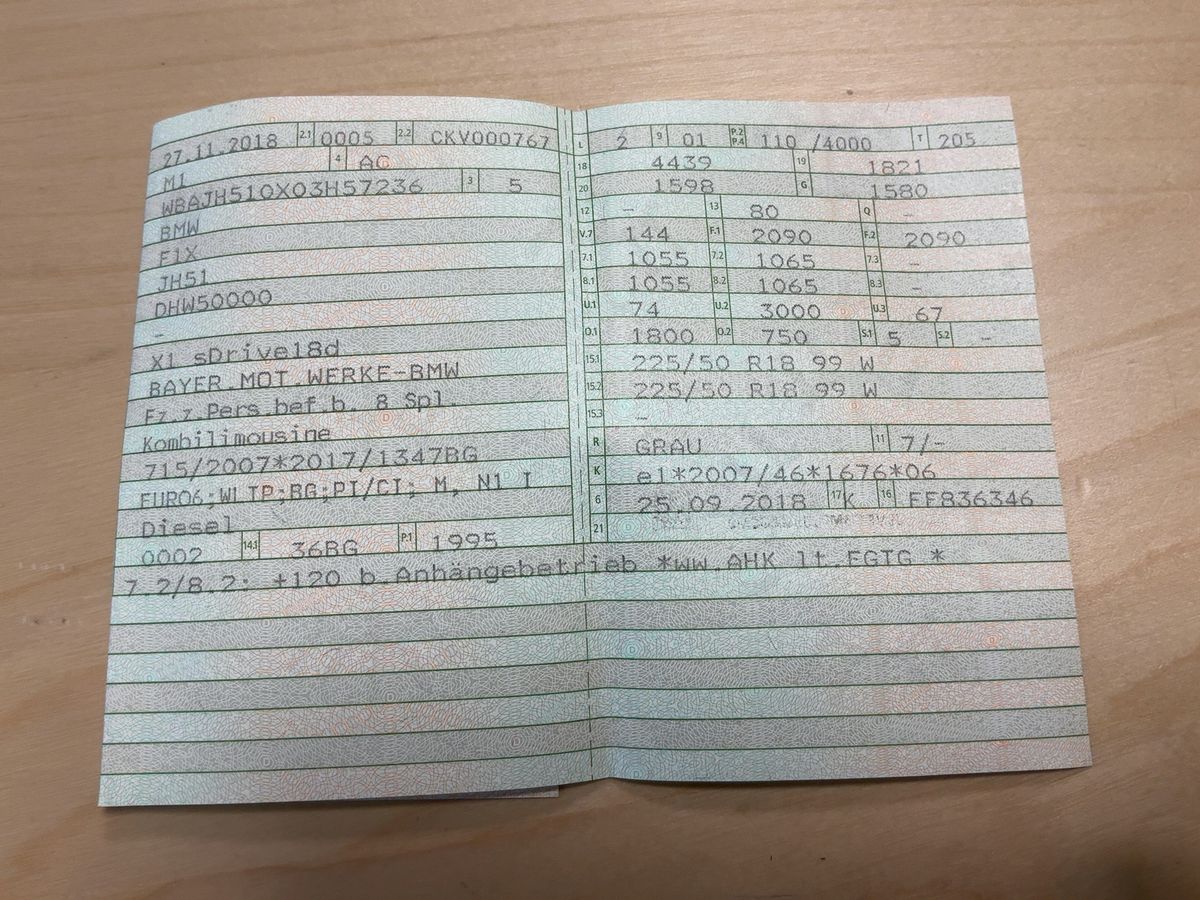 27.11.2018 2.1 0005 2.2 CKV000767
M1 4 AC
WBAJH510X03H57236 3 5
BMW
F1X
JH51
DHW50000
-
X1 sDrive18d
BAYER.MOT.WERKE-BMW
Fz.z.Pers.bef.b. 8 Spl.
Kombilimousine
715/2007*2017/1347BG
EURO6;WLTP;BG;PI/CI; M, N1 I
Diesel
0002 14.1 36BG P.1 1995
L 2 9 01 P.2 P.4 110 /4000 T 205
18 4439 19 1821
20 1598 G 1580
12 - 13 80 Q -
V.7 144 F.1 2090 F.2 2090
7.1 1055 7.2 1065 7.3 -
8.1 1055 8.2 1065 8.3 -
U.1 74 U.2 3000 U.3 67
O.1 1800 O.2 750 S.1 5 S.2 -
15.1 225/50 R18 99 W
15.2 225/50 R18 99 W
15.3 -
R GRAU 11 7/-
K e1*2007/46*1676*06
6 25.09.2018 17 K 16 FF836346
21
7.2/8.2: +120 b.Anhängebetrieb *ww.AHK lt.FGTG *